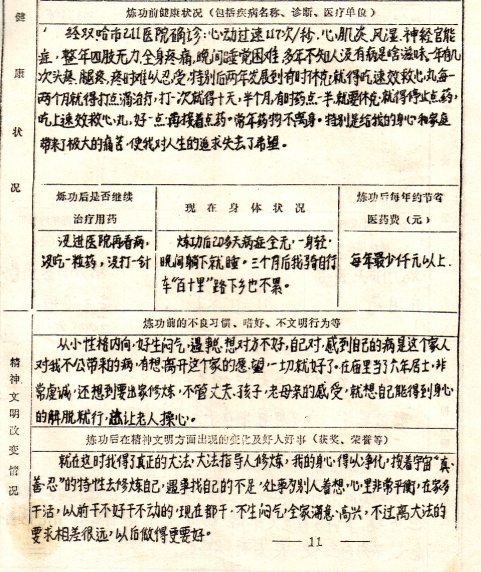 健康状况
炼功前健康状况（包括疾病名称、诊断、医疗单位）
经双哈市211医院确诊:心动过速117次/秒.心肌炎.风湿.神经官能
症,整年四肢无力.全身疼痛,晚间睡觉困难.多年不知人没有病是啥滋味.一年有几
次头疼.腿疼,疼时难以忍受.特别后两年发展到有时休克,就得吃速效救心丸每一
两个月就得打点滴治疗,打一次就得十天,半个月.有时药点一半就要休克,就得停止点药,
吃上速效救心丸,好一点再接着点药。常年药物不离身。特别是给我的身心和家庭
带来了极大的痛苦.使我对人生的追求失去了希望。
炼功后是否继续
治疗用药
没进医院再看病,
没吃一粒药,没打一针
现在身体状况
炼功后20多天病症全无,一身轻,
晚间躺下就睡。三个月后我骑自行
车"百十里"路下乡也不累。
炼功后每年约节省
医药费（元）
每年最少仟元以上.
精神文明改变情况
炼功前的不良习惯、嗜好、不文明行为等
从小性格内向,好生闷气,遇事总想对方不好,自己对.感到自己的病是这个家人
对我不公带来的病,有想离开这个家的愿望一切就好了。在庙里当了六年居士,非
常虔诚,还想到要出家修炼,不管丈夫.孩子,老母亲的感受,就想自己能得到身心
的解脱就行,让老人操心。
炼功后在精神文明方面出现的变化及好人好事（获奖、荣誉等）
就在这时我得了真正的大法,大法指导人修炼,我的身心得以净化,按着宇宙"真.
善忍"的特性去修炼自己,遇事找自己的不足,处事为别人着想,心里非常平衡,在家多
干活,以前干不好干不动的,现在都干.不生闷气,全家满意.高兴,不过离大法的
要求相差很远,以后做得更要好。
— 11 —